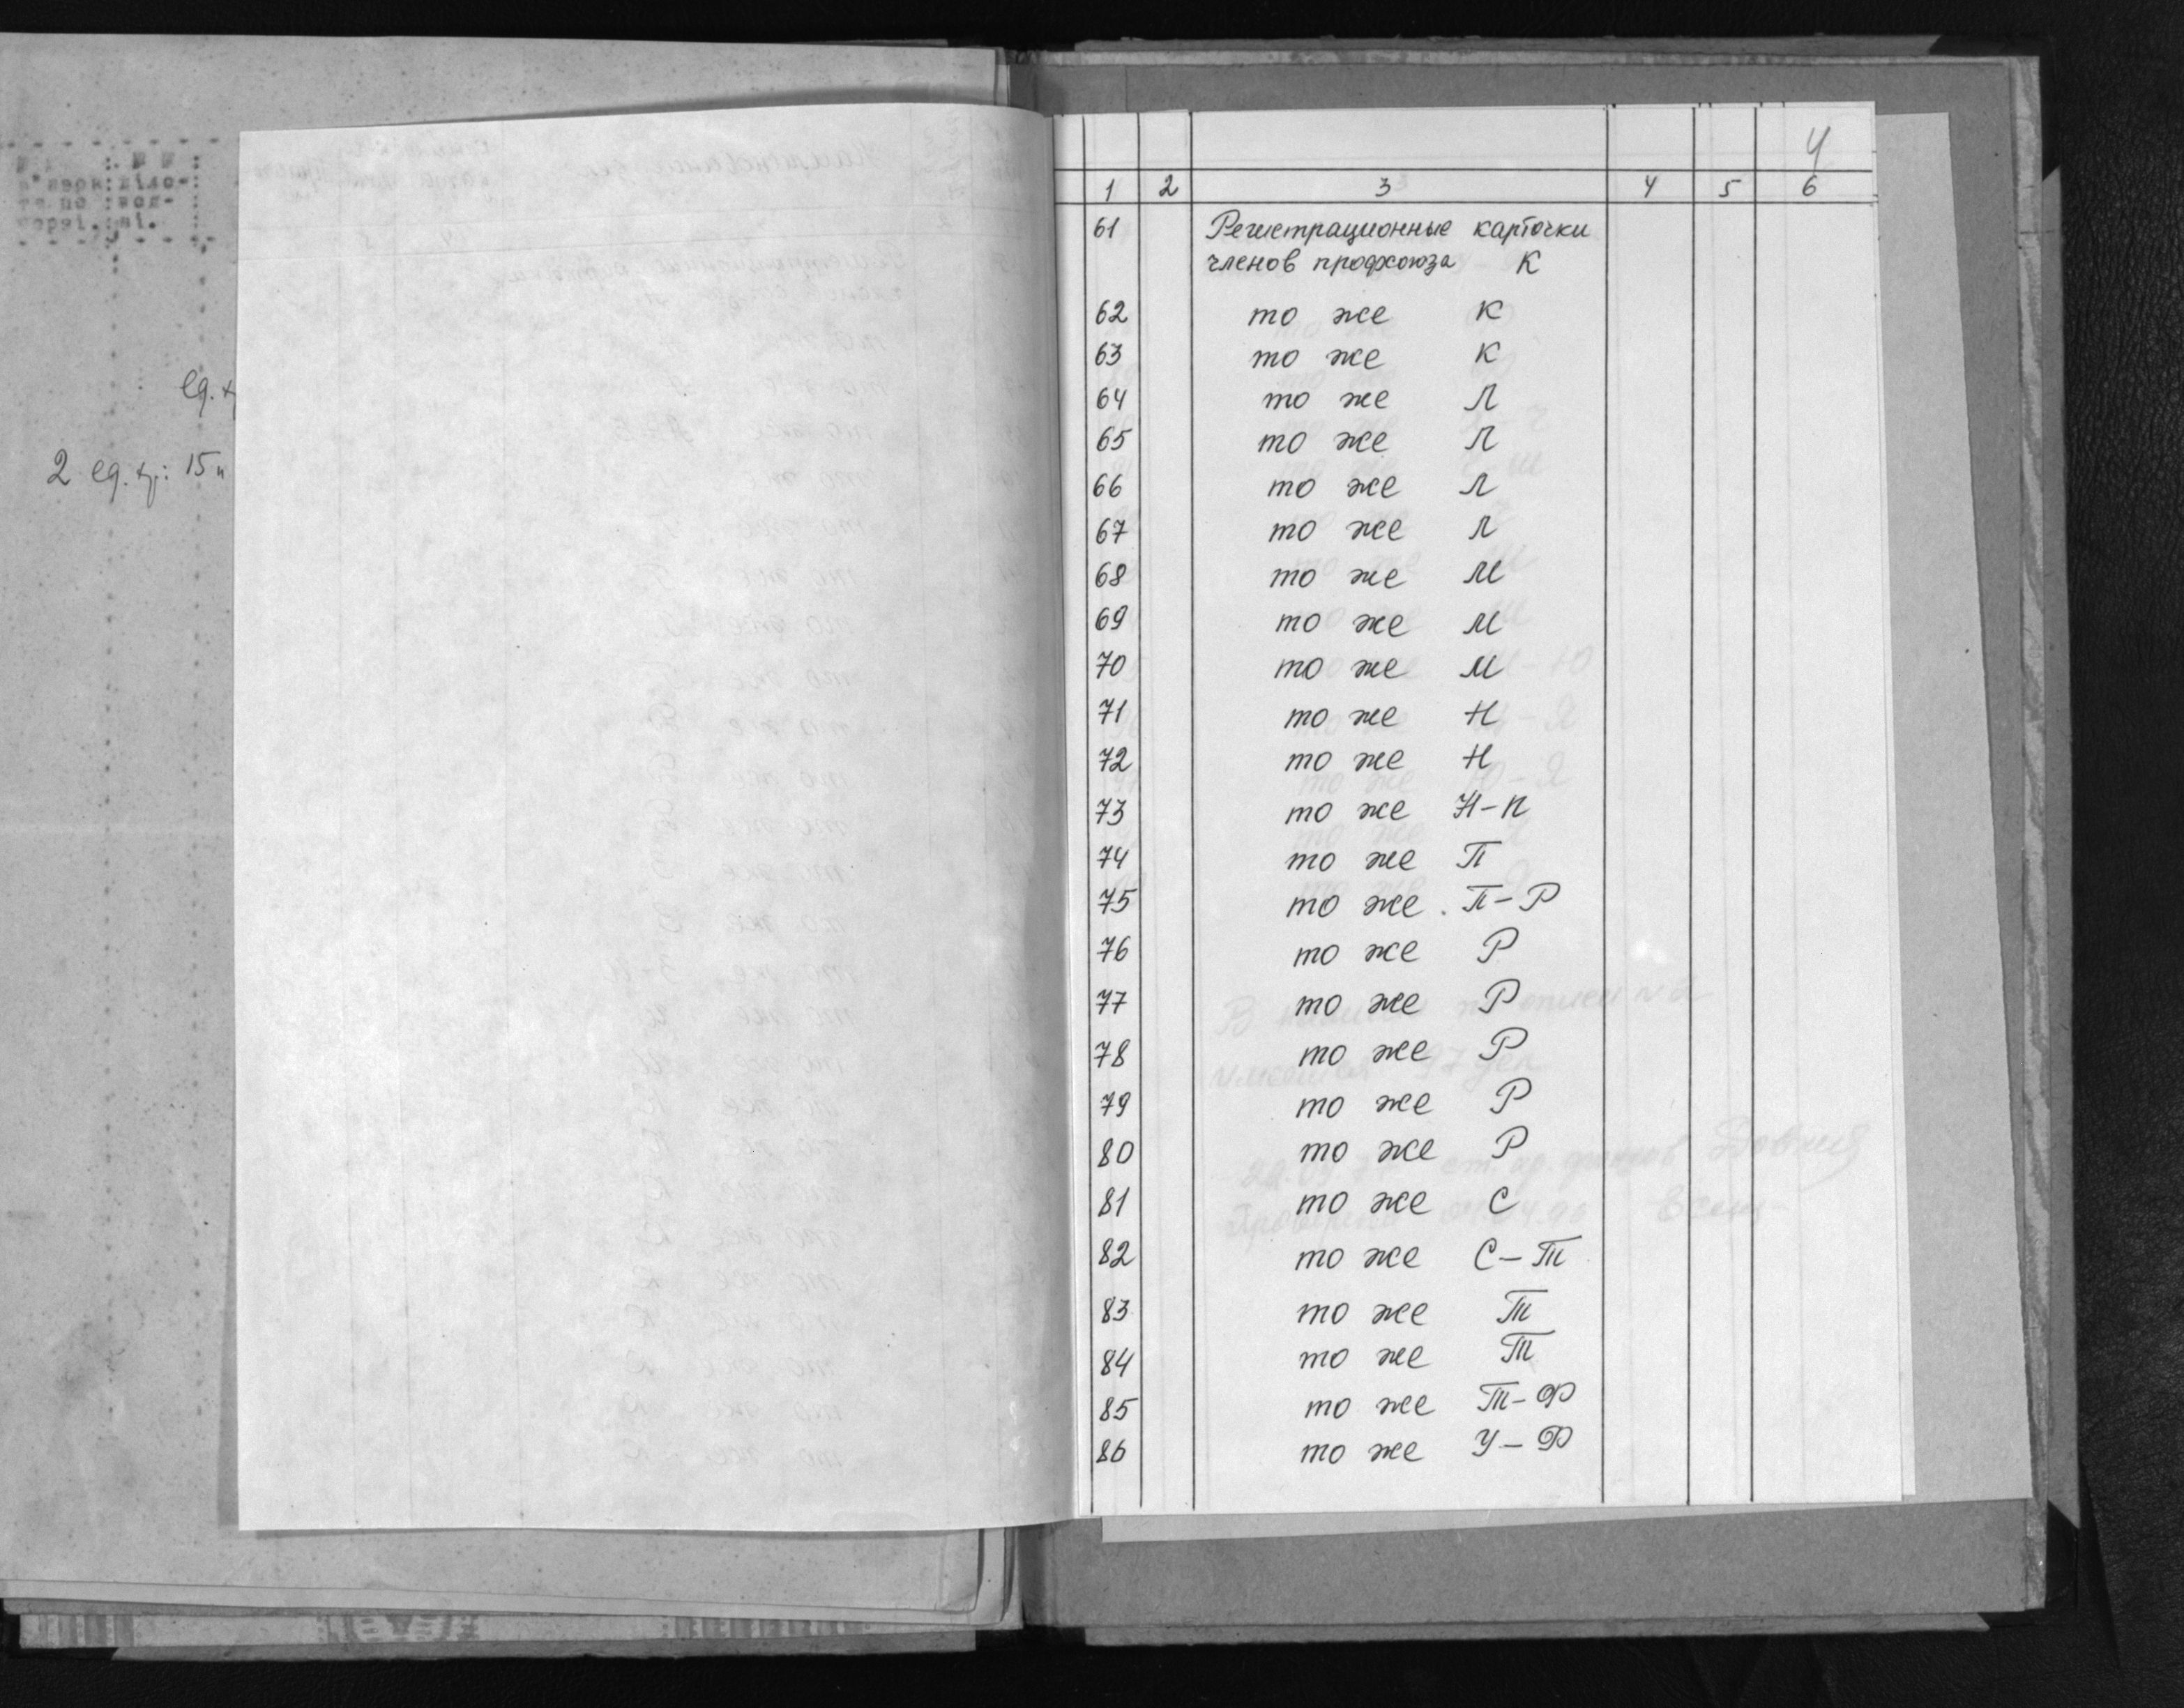 2 ед. хр: 15
4
1 2 3 4 5 6
61 Регистрационные карточки
членов профсоюза К
62 то же К
63 то же К
64 то же Л
65 то же Л
66 то же Л
67 то же Л
68 то же М
69 то же М
70 то же М
71 то же Н
72 то же Н
73 то же Н-П
74 то же П
75 то же П-Р
76 то же Р
77 то же Р
78 то же Р
79 то же Р
80 то же Р
81 то же С
82 то же С-Т
83 то же Т
84 то же Т
85 то же Т-Ф
86 то же У-Ф